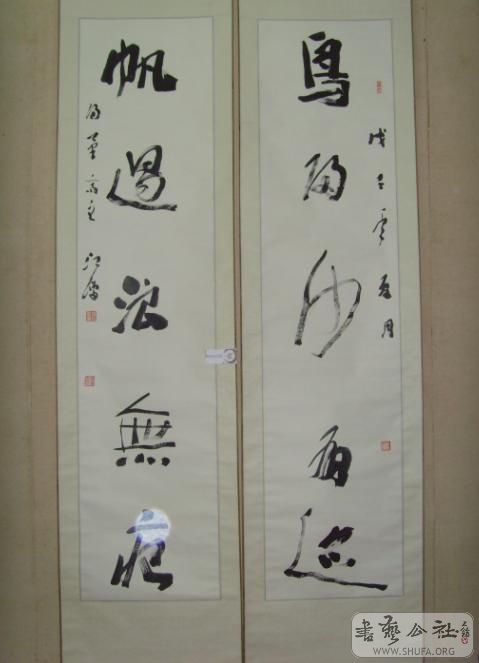 鳥歸沙有迹
戊子 夏月
帆過浪無痕
書藝公社
WWW.SHUFA.ORG